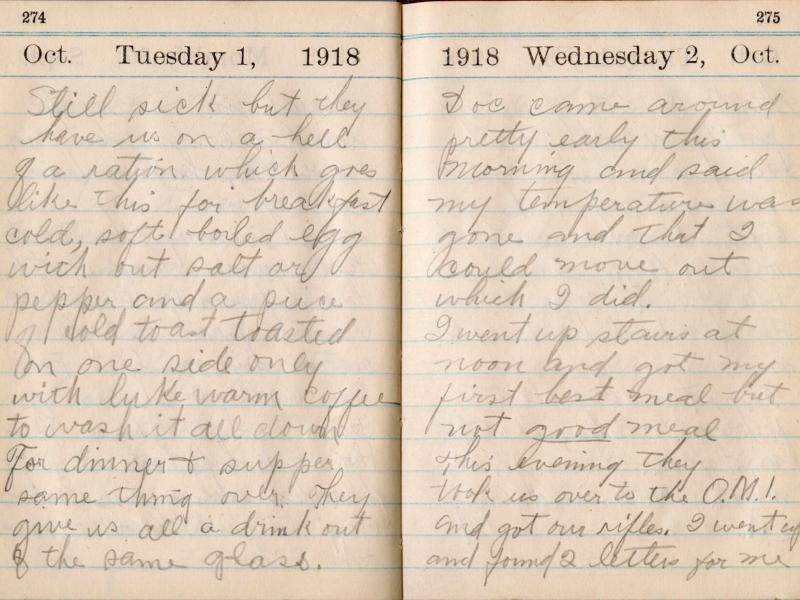 274
Oct. Tuesday 1, 1918
Still sick but they
have us on a hell
of a ration which goes
like this for breakfast
cold, soft boiled egg
with out salt or
pepper and a piece
of cold toast toasted
on one side only
with luke warm coffee
to wash it all down
For dinner & supper
same thing over. They
give us all a drink out
of the same glass.
275
1918 Wednesday 2, Oct.
Doc came around
pretty early this
morning and said
my temperature was
gone and that I
could move out
which I did.
I went up stairs at
noon and got my
first best meal but
not good meal
This evening they
took us over to the O.M.I.
and got our rifles. I went up
and found 2 letters for me